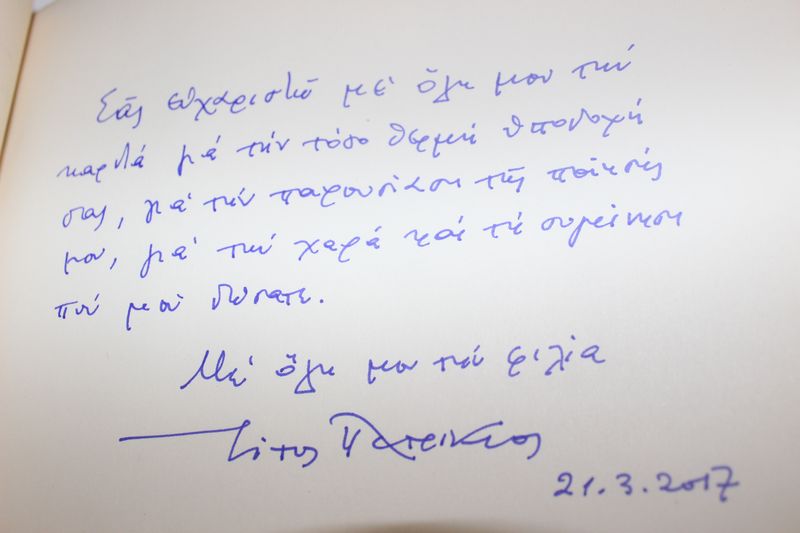 Σᾶς εὐχαριστῶ μὲ ὅλη μου τὴν
καρδιά γιά τὴν τόσο θερμή ὑποδοχή
σας, γιά τὴν παρουσίαση τῆς ποίησής
μου, γιά τὴν χαρά καί τή συγκίνηση
πού μοῦ δώσατε.
Μέ ὅλη μου τὴν φιλία
Τίτος Πατρίκιος
21.3.2017